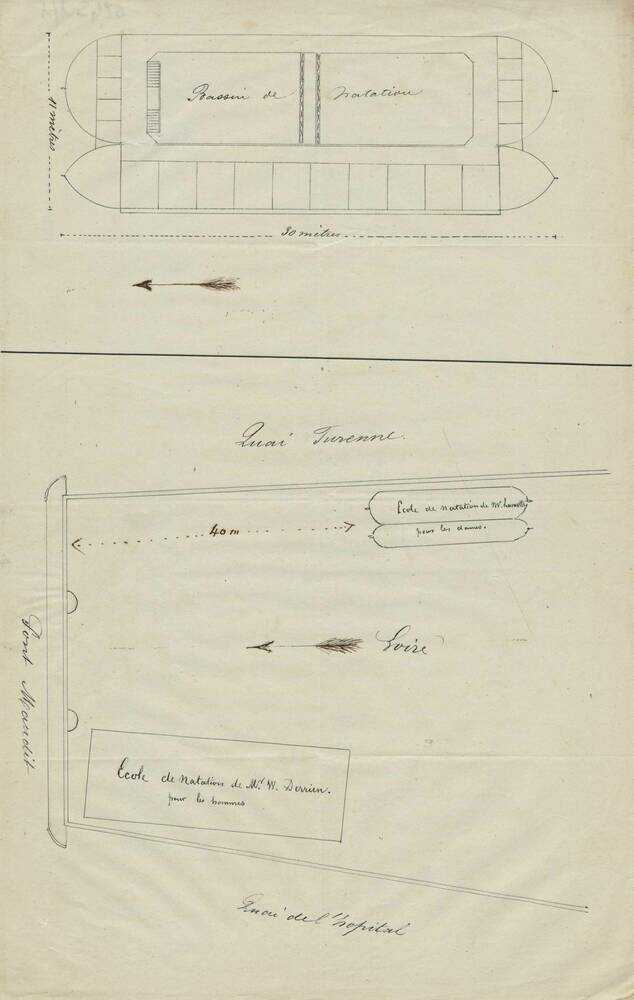 Bassin de Natation
11 mètres
30 mètres
Quai Turenne.
Ecole de natation de Mr
pour les dames.
40 m
Loire
Pont Maudit
Ecole de natation de Mr W. Derrien.
pour les hommes
Quai de l'hopital